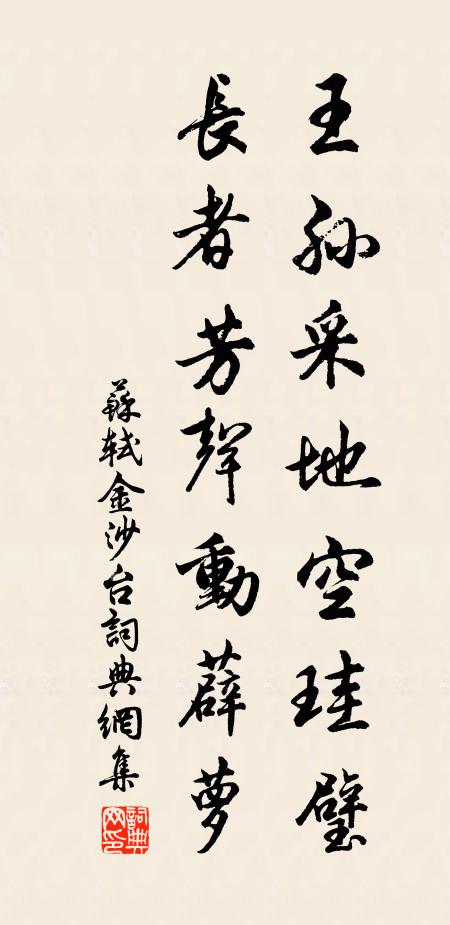 王孫采地空珪璧
長者芳聲動薜蘿
蘇軾金沙台詞典網集
詞典網印